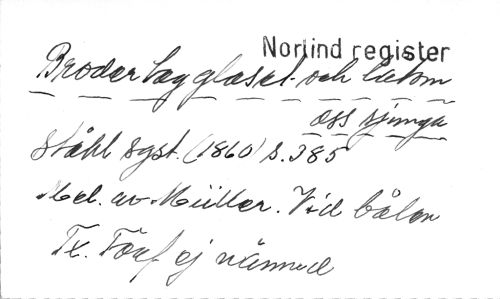 Norlind register
Broder tag glaset och låtom
oss sjunga
Ståhl sgst. (1860) s. 385
Mel. av Müller. Vid bålen
Tx. Förf ej nämnd